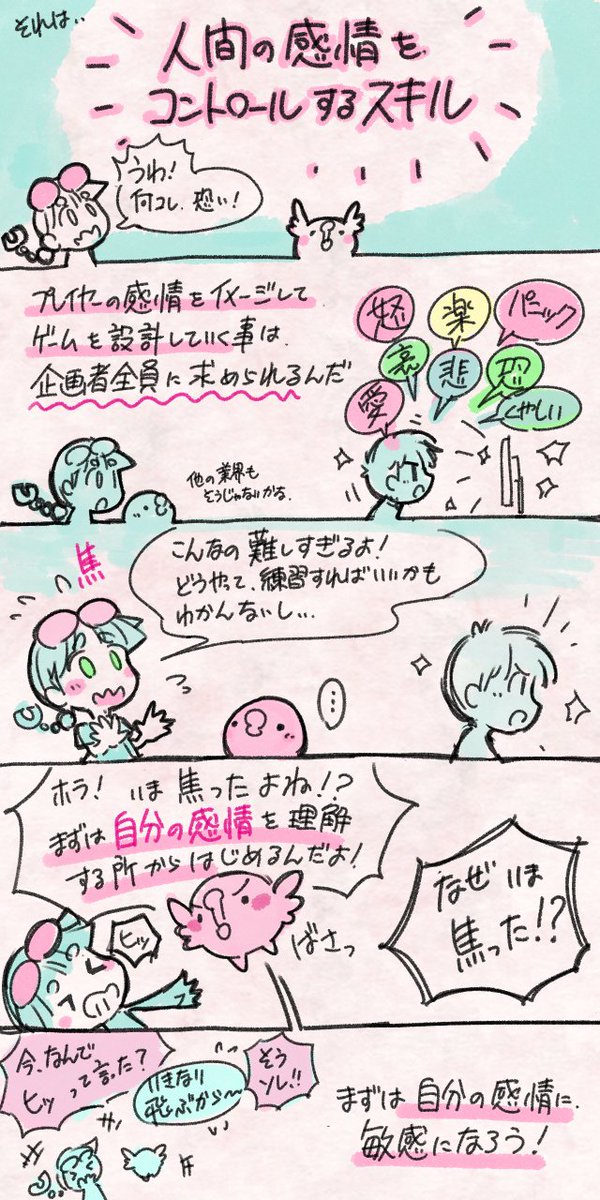 それは‥
人間の感情を
コントロールするスキル
うわ!
何コレ、恐い!
プレイヤーの感情をイメージして
ゲームを設計していく事は、
企画者全員に求められるんだ
怒
楽
パニック
哀
悲
恐
愛
くやしい
他の業界も
そうじゃないかな。
焦
こんなの難しすぎるよ!
どうやって、練習すればいいかも
わかんないし…
…
ホラ!いま焦ったよね!?
まずは自分の感情を理解
する所からはじめるんだよ!
なぜいま
焦った!?
ヒッ
ばさっ
今、なんで
ヒッって言った?
いきなり
飛ぶから〜
そう
ソレ!!
まずは自分の感情に、
敏感になろう!